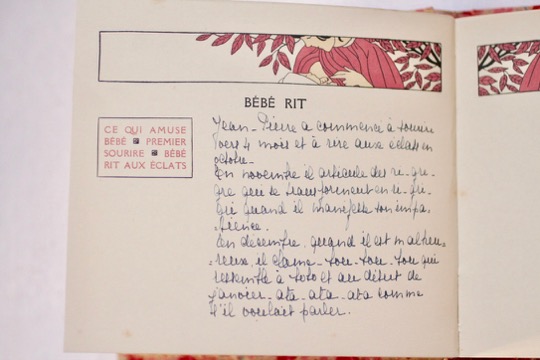 BÉBÉ RIT
CE QUI AMUSE
BÉBÉ ▪ PREMIER
SOURIRE ▪ BÉBÉ
RIT AUX ÉCLATS
Jean-Pierre a commencé à sourire
vers 4 mois et à rire aux éclats en
octobre.
En novembre il articule des re-gre-
gre qui se transforment en re-gre-
gui quand il manifeste son impa-
-tience.
En décembre, quand il est malheu-
reux, il clame - tou-tou-tou qui
ressemble à toto et au début de
janvier - ata-ata-ata comme
s'il voulait parler.